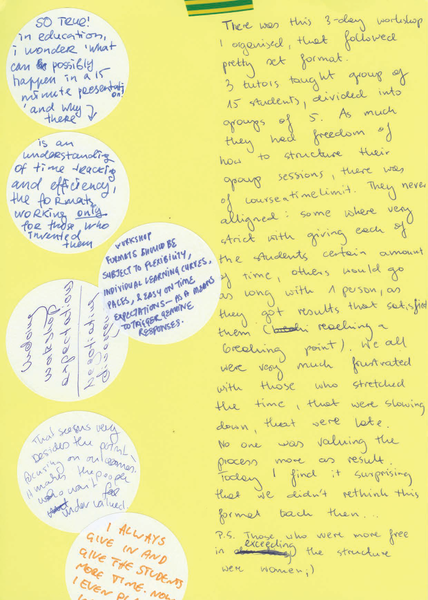 SO TRUE!
in education,
i wonder 'what
can possibly
happen in a 15
minute presentation?'
and why
there
is an
understanding
of time teaching
and efficiency,
the formats
working only
for those who
invented
them
WORKSHOP
FORMATS SHOULD BE
SUBJECT TO FLEXIBILITY,
INDIVIDUAL LEARNING CURVES,
PACES, & EASY ON TIME
EXPECTATIONS - AS A MEANS
TO TRIGGER GENUINE
RESPONSES.
undoing
workshop
expectations
Negotiating
That seems very
besides the point -
on outcomes.
It makes the people
who want
undervalued.
I ALWAYS
GIVE IN AND
GIVE THE STUDENTS
MORE TIME. NOW
I EVEN
There was this 3-day workshop
I organised, that followed
pretty set format.
3 tutors taught group of
15 students, divided into
groups of 5. As much
they had freedom of
how to structure their
group sessions, there was
of course timelimit. They never
alligned: some where very
strict with giving each of
the students certain amount
of time, others would go
as long with 1 person, as
they got results that satisfied
them ( reaching a
breaching point). We all
were very much frustrated
with those who stretched
the time, that were slowing
down, that were late.
No one was valuing the
process more as result.
Today I find it surprising
that we didn't rethink this
format back then...
P.S. Those who were more free
in exceeding the structure
were women ;)